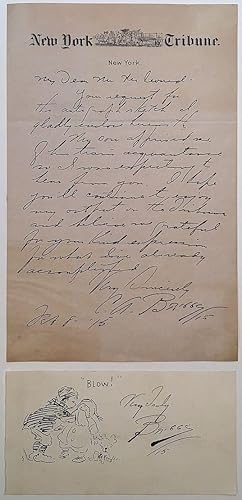 New York Tribune.
New York.
My Dear Mr
Your request for
the autograph sketch I
gladly
My son
his train acquaintance
so I was expect to
hear from you. I hope
you'll continue to enjoy
my output in the Tribune
and believe me grateful
for your kind expression
for what I've already
accomplished.
Very Sincerely
C.A. Briggs
/15
Feb 8 - 15.
"BLOW!"
Very Truly
Briggs
/15.